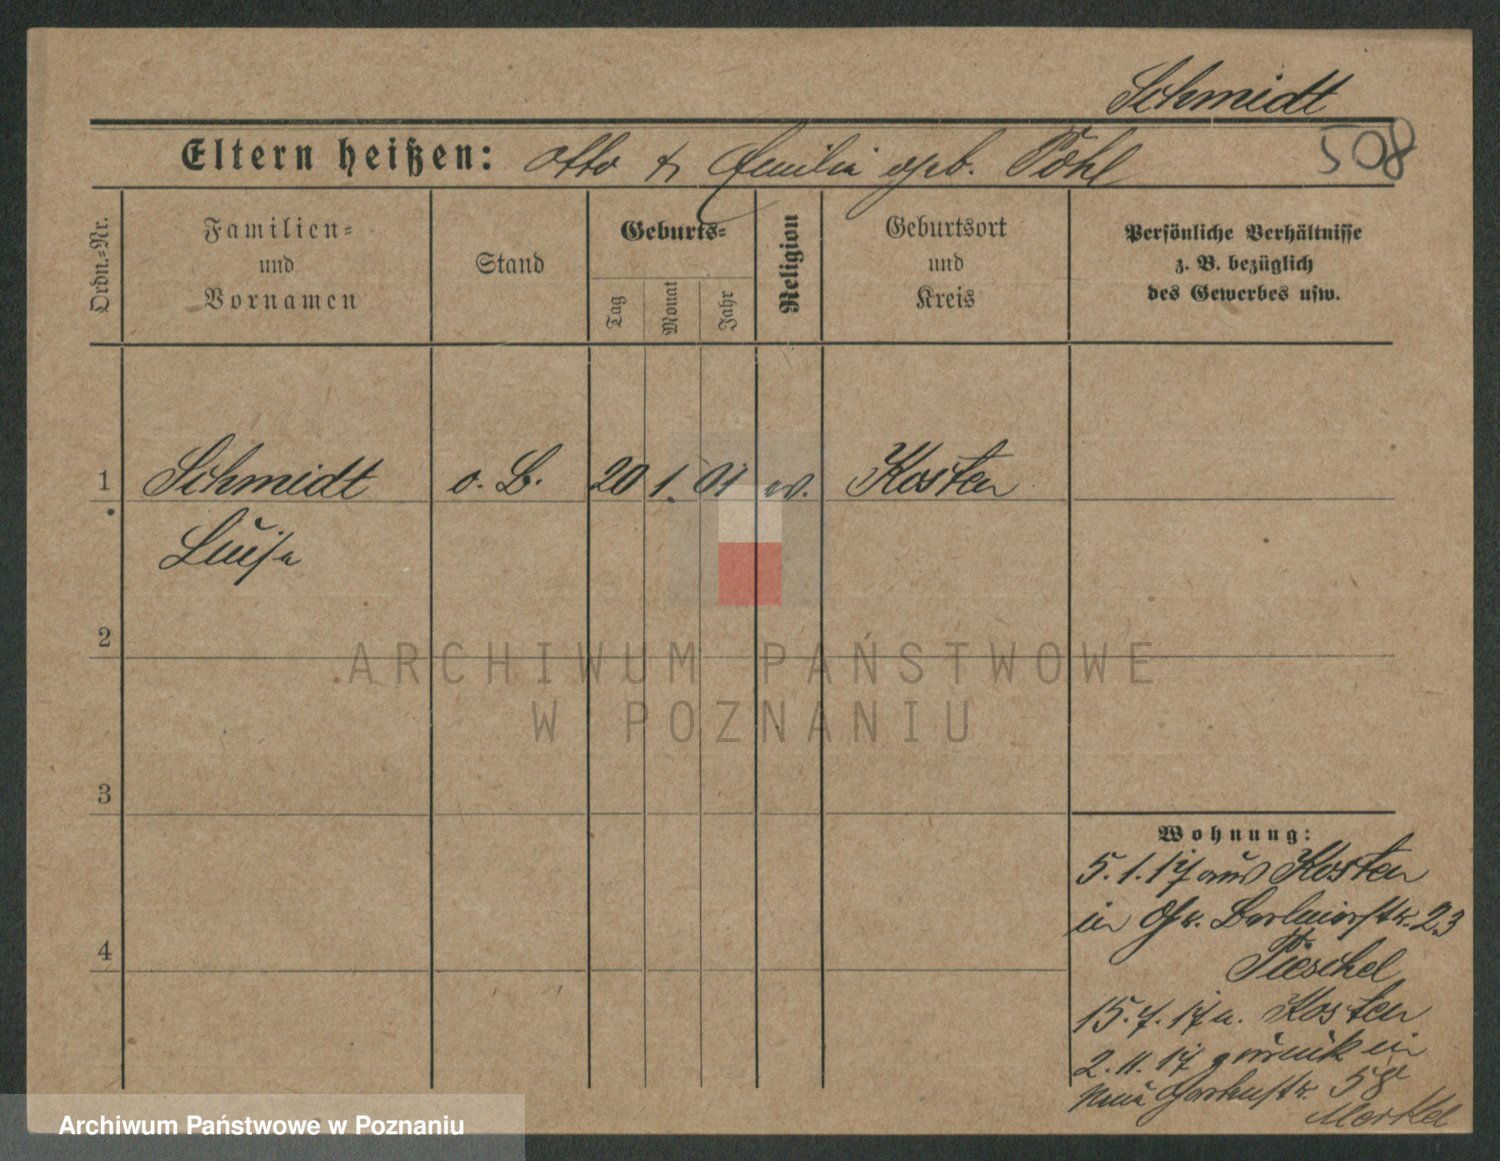 Schmidt
Eltern heißen: Otto & Emilia geb. Pohl
508
Ordn.-Nr.
Familien-
und
Vornamen
Stand
Geburts-
Tag
Monat
Jahr
Religion
Geburtsort
und
Kreis
Persönliche Verhältnisse
z. B. bezüglich
des Gewerbes usw.
1 Schmidt o. B. 20 1. 01 ev. Kosten
Luise
2
ARCHIWUM PAŃSTWOWE
W POZNANIU
3
Wohnung:
5.1.17 aus Kosten
in Gr. Berlinerstr. 23
4
15.7.17 n. Kosten
2.11.17 zurück in
Neue Gartenstr. 58
Archiwum Państwowe w Poznaniu